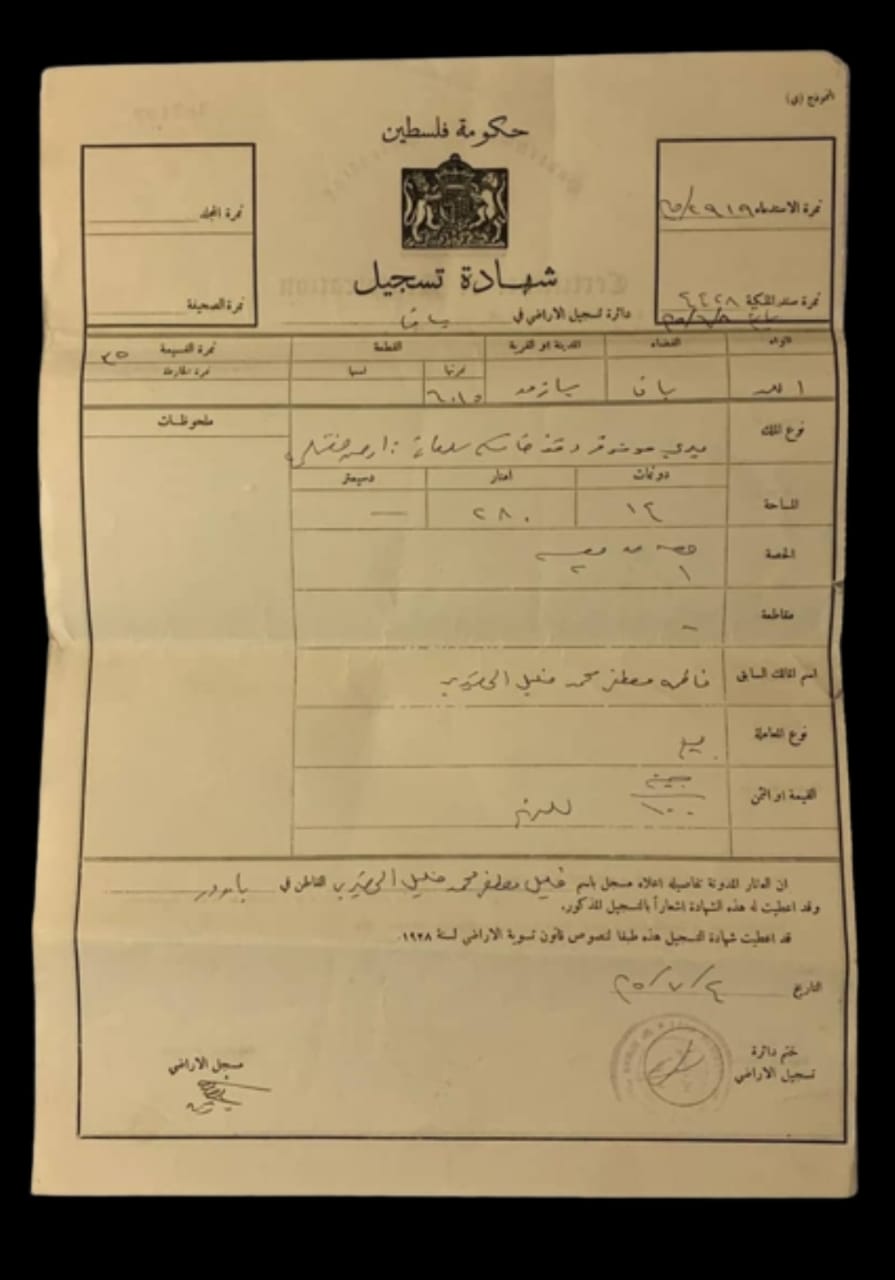 النموذج (ي)
حكومة فلسطين
نمرة الاستدعاء ٢٩١٩/٣٥
نمرة المجلد
شهادة تسجيل
نمرة سند الملكية ٤٤٢٨
نمرة الصحيفة
دائرة تسجيل الاراضي في يافا
اللواء القضاء المدينة او القرية القطعة نمرة القسيمة ٣٥
نمرتها اسمها نمرة الخارطة
يافا يازور ٦٠١٥
نوع الملك
ملحوظات
دونمات امتار دسيمتر
المساحة ١٢ ٢٨٠ —
الحصة حصة من حصص
١ ٢
مقاطعة -
اسم المالك السابق فاطمه مصطفى محمد خليل
نوع المعاملة بيع
القيمة او الثمن جنيه
١٠٠
ان العقار المدونة تفاصيله اعلاه مسجل باسم خليل مصطفى محمد خليل القاطن في يازور
وقد اعطيت له هذه الشهادة اشعاراً بالتسجيل المذكور.
قد اعطيت شهادة التسجيل هذه طبقا لنصوص قانون تسوية الاراضي لسنة ١٩٢٨.
التاريخ ٤/٧/٣٥
ختم دائرة
تسجيل الاراضي
مسجل الاراضي